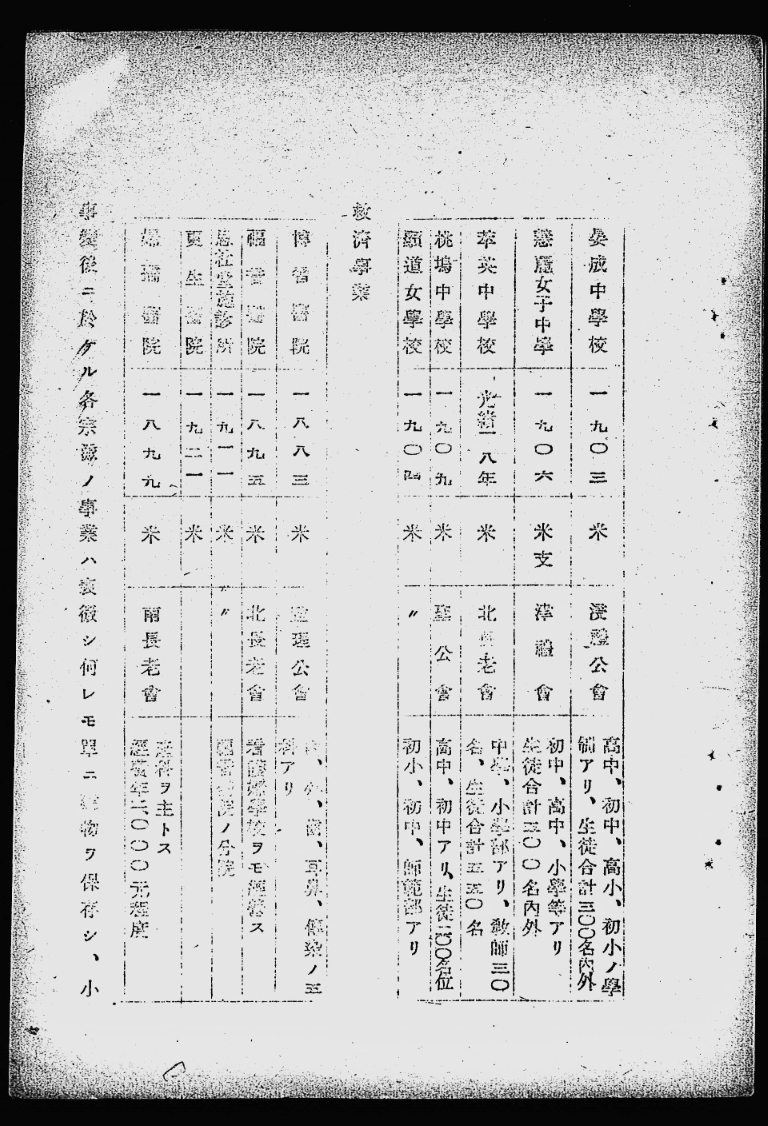 晏成中學校 一九〇三 米 浸禮公會 高中、初中、高小、初小ノ學
アリ、生徒合計三〇〇名內外
慧靈女子中學 一九〇六 米支 浸禮會 初中、高中、小學等アリ
生徒合計三〇〇名內外
萃英中學校 光緒一八年 米 北長老會 中學、小學部アリ、敎師三〇
名、生徒合計五五〇名
桃塢中學校 一九〇九 米 聖公會 高中、初中アリ、生徒二〇〇名位
顯道女學校 一九〇四 米 〃 初小、初中、師範部アリ
救濟事業
博習醫院 一八八三 米 監理公會 內、外、齒、耳鼻、傳染ノ五
科アリ
福音醫院 一八九五 米 北長老會 看護婦學校ヲモ經營ス
社堂施診所 一九一一 米 〃 福音醫院ノ分院
更生醫院 一九二一 米
醫院 一八九九 米 南長老會 產科ヲ主トス
經費年二、〇〇〇元程度
事變後ニ於ケル各宗派ノ事業ハ衰微シ何レモ單ニ建物ヲ保存シ、小